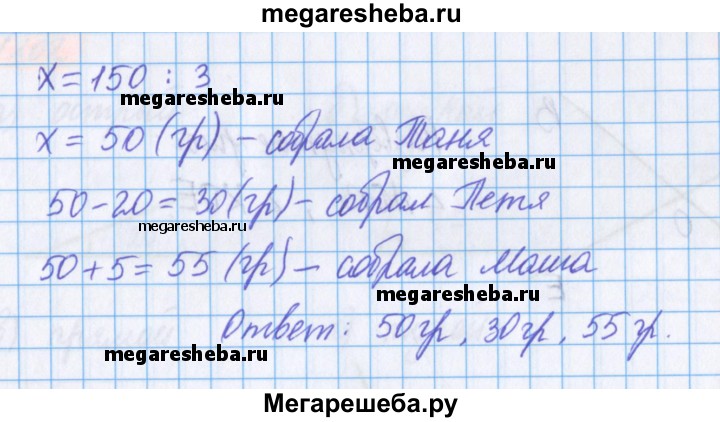 megaresheba.ru
x = 150 : 3
megaresheba.ru
x = 50 (гр) – собрала Таня
megaresheba.ru
50 - 20 = 30 (гр) – собрал Петя
megaresheba.ru
50 + 5 = 55 (гр) – собрала Маша
megaresheba.ru
Ответ: 50 гр, 30 гр, 55 гр.
megaresheba.ru
Мегарешеба.ру